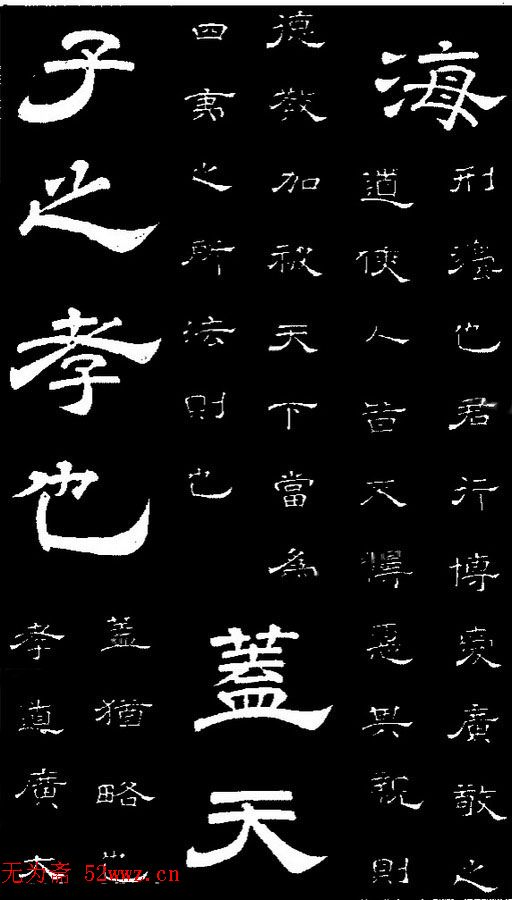 海
刑灋也君行博愛廣敬之
道使人皆不慢惡其親則
德教加被天下當為
四夷之所法則也
蓋天
子之孝也
蓋猶略也
孝道廣大
无为斋 52wwz.cn